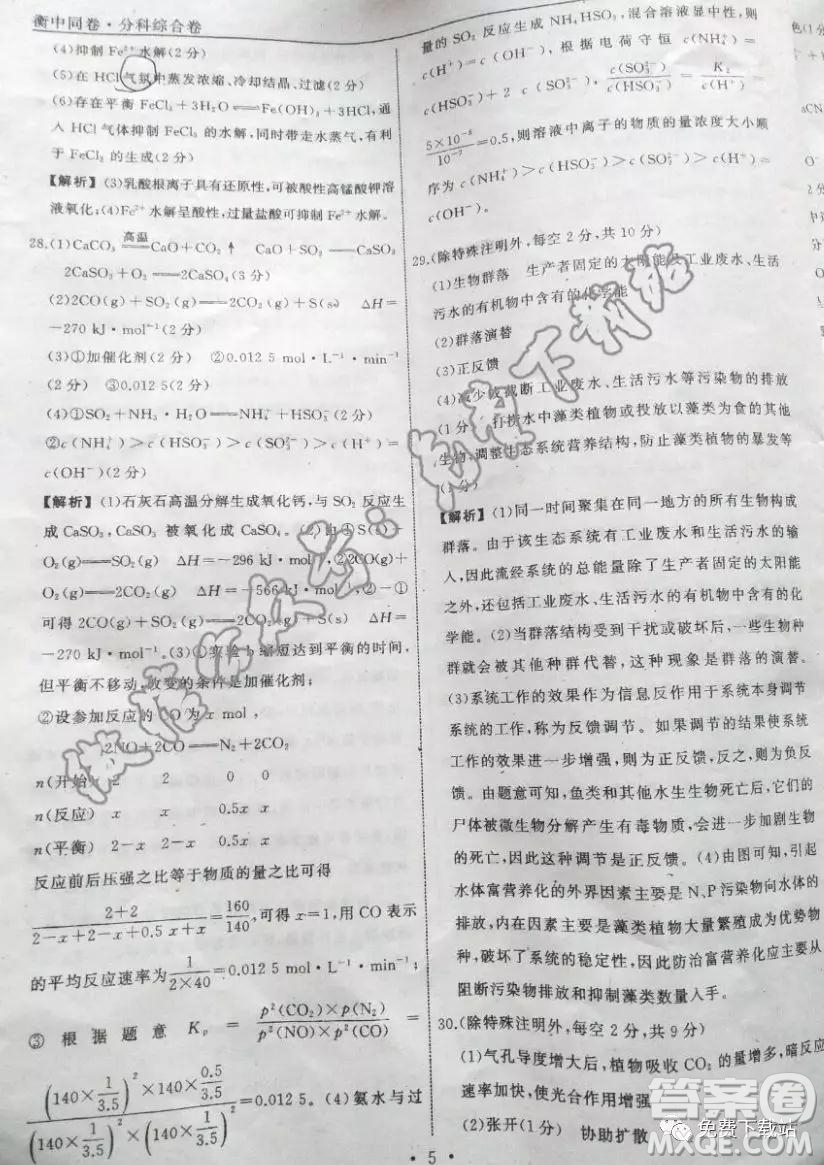 衡中同卷·分科综合卷
(4)抑制 Fe²⁺水解(2分)
(5)在 HCl 气氛中蒸发浓缩、冷却结晶、过滤(2分)
(6)存在平衡 FeCl₃+3H₂O⇌Fe(OH)₃+3HCl,通
入 HCl 气体抑制 FeCl₃ 的水解,同时带走水蒸气,有利
于 FeCl₃ 的生成(2分)
【解析】(3)乳酸根离子具有还原性,可被酸性高锰酸钾溶
液氧化;(4)Fe²⁺水解呈酸性,过量盐酸可抑制 Fe²⁺水解。
28.(1)CaCO₃ 高温 CaO+CO₂↑ CaO+SO₂══CaSO₃
2CaSO₃+O₂══2CaSO₄(3分)
(2)2CO(g)+SO₂(g)══2CO₂(g)+S(s) ΔH=
−270 kJ·mol⁻¹(2分)
(3)①加催化剂(2分) ②0.012 5 mol·L⁻¹·min⁻¹
(2分) ③0.012 5(2分)
(4)①SO₂+NH₃·H₂O══NH₄⁺+HSO₃⁻(2分)
②c(NH₄⁺)>c(HSO₃⁻)>c(SO₃²⁻)>c(H⁺)=
c(OH⁻)(2分)
【解析】(1)石灰石高温分解生成氧化钙,与 SO₂ 反应生
成 CaSO₃,CaSO₃ 被氧化成 CaSO₄。(2)由①S(s)+
O₂(g)══SO₂(g) ΔH=−296 kJ·mol⁻¹,②2CO(g)+
O₂(g)══2CO₂(g) ΔH=−566 kJ·mol⁻¹,②−①
可得 2CO(g)+SO₂(g)══2CO₂(g)+S(s) ΔH=
−270 kJ·mol⁻¹。(3)①实验 b 缩短达到平衡的时间,
但平衡不移动,改变的条件是加催化剂;
②设参加反应的 CO 为 x mol,
2NO+2CO══N₂+2CO₂
n(开始) 2 2 0 0
n(反应) x x 0.5x x
n(平衡) 2−x 2−x 0.5x x
反应前后压强之比等于物质的量之比可得
(2+2)/(2−x+2−x+0.5x+x)=160/140,可得 x=1,用 CO 表示
的平均反应速率为 1/(2×40)=0.012 5 mol·L⁻¹·min⁻¹;
③ 根据题意 Kₚ = p²(CO₂)×p(N₂)/p²(NO)×p²(CO) =
(140×1/3.5)²×140×0.5/3.5 / (140×1/3.5)²×(140×1/3.5)² =0.012 5。(4)氨水与过
量的 SO₂ 反应生成 NH₄HSO₃,混合溶液显中性,则
c(H⁺)=c(OH⁻),根据电荷守恒 c(NH₄⁺)=
c(HSO₃⁻)+2c(SO₃²⁻). c(SO₃²⁻)/c(HSO₃⁻)=K/c(H⁺)=
5×10⁻⁸/10⁻⁷=0.5,则溶液中离子的物质的量浓度大小顺
序为 c(NH₄⁺)>c(HSO₃⁻)>c(SO₃²⁻)>c(H⁺)=
c(OH⁻)。
29.(除特殊注明外,每空2分,共10分)
(1)生物群落 生产者固定的太阳能及工业废水、生活
污水的有机物中含有的化学能
(2)群落演替
(3)正反馈
(4)减少或截断工业废水、生活污水等污染物的排放
(1分) 打捞水中藻类植物或投放以藻类为食的其他
生物,调整生态系统营养结构,防止藻类植物的暴发等
(1分)
【解析】(1)同一时间聚集在同一地方的所有生物构成
群落。由于该生态系统有工业废水和生活污水的输
入,因此流经系统的总能量除了生产者固定的太阳能
之外,还包括工业废水、生活污水的有机物中含有的化
学能。(2)当群落结构受到干扰或破坏后,一些生物种
群就会被其他种群代替,这种现象是群落的演替。
(3)系统工作的效果作为信息反作用于系统本身调节
系统的工作,称为反馈调节。如果调节的结果使系统
工作的效果进一步增强,则为正反馈,反之,则为负反
馈。由题意可知,鱼类和其他水生生物死亡后,它们的
尸体被微生物分解产生有毒物质,会进一步增强死亡
效果,因此这种调节是正反馈。(4)由图可知,引起
水体富营养化的外界因素主要是 N、P 污染物向水体的
排放,内在因素主要是藻类植物大量繁殖成为优势物
种,破坏了系统的稳定性,因此防治富营养化应主要从
阻断污染物排放和抑制藻类数量入手。
30.(除特殊注明外,每空2分,共9分)
(1)气孔导度增大后,植物吸收 CO₂ 的量增多,暗反应
速率加快,使光合作用增强
(2)张开(1分) 协助扩散
· 5 ·
答案圈
免费下载站